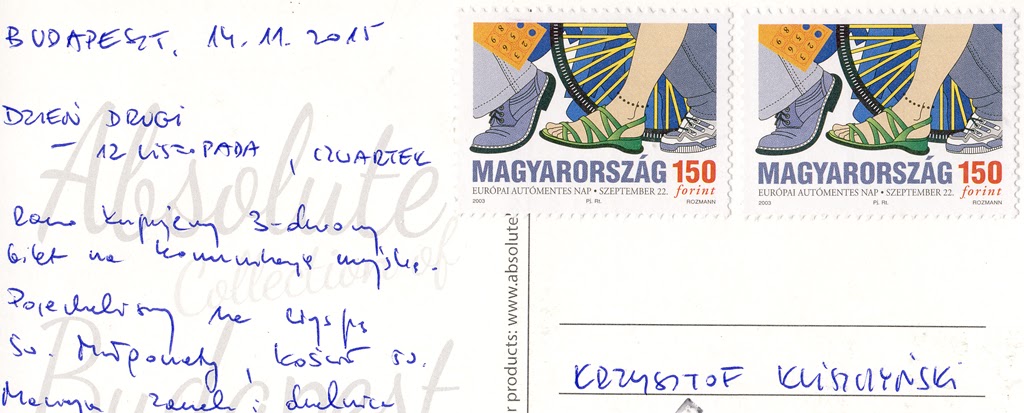 BUDAPESZT, 14.11.2015
DZIEŃ DRUGI
- 12 LISTOPADA, CZWARTEK
Rano kupujemy 3-dniowy
bilet na komunikację miejską.
Pojechaliśmy na wyspę
św. Małgorzaty, kościół św.
Macieja zamek i dzielnica
MAGYARORSZÁG 150
forint
EURÓPAI AUTÓMENTES NAP • SZEPTEMBER 22.
2003 Pj. Rt. ROZMANN
MAGYARORSZÁG 150
forint
EURÓPAI AUTÓMENTES NAP • SZEPTEMBER 22.
2003 Pj. Rt. ROZMANN
Absolute
Collection of
Budapest
r products: www.absolute
KRZYSZTOF KLISZCZYŃSKI